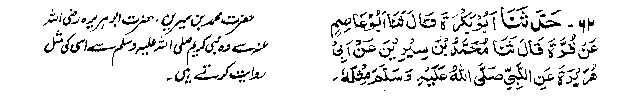 ۶۲۔ حَدَّثَنَا اَبُوْبَكْرَةَ قَالَ ثَنَا اَبُوْعَاصِمٍ
عَنْ قُرَّةَ قَالَ ثَنَا مُحَمَّدُ بْنُ سِيْرِيْنَ عَنْ اَبِيْ
هُرَيْرَةَ عَنِ النَّبِيِّ صَلَّى اللهُ عَلَيْهِ وَسَلَّمَ مِثْلَهٗ۔
حضرت محمد بن سیرین، حضرت ابوہریرہ رضی اللہ
عنہ سے وہ نبی کریم صلی اللہ علیہ وسلم سے اسی کی مثل
روایت کرتے ہیں۔